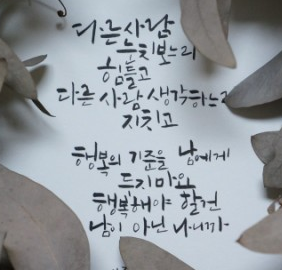 다른사람
눈치보느라
힘들고
다른 사람 생각하느라
지치고
행복의 기준을 남에게
두지마요
행복해야 할건
남이 아닌 나니까